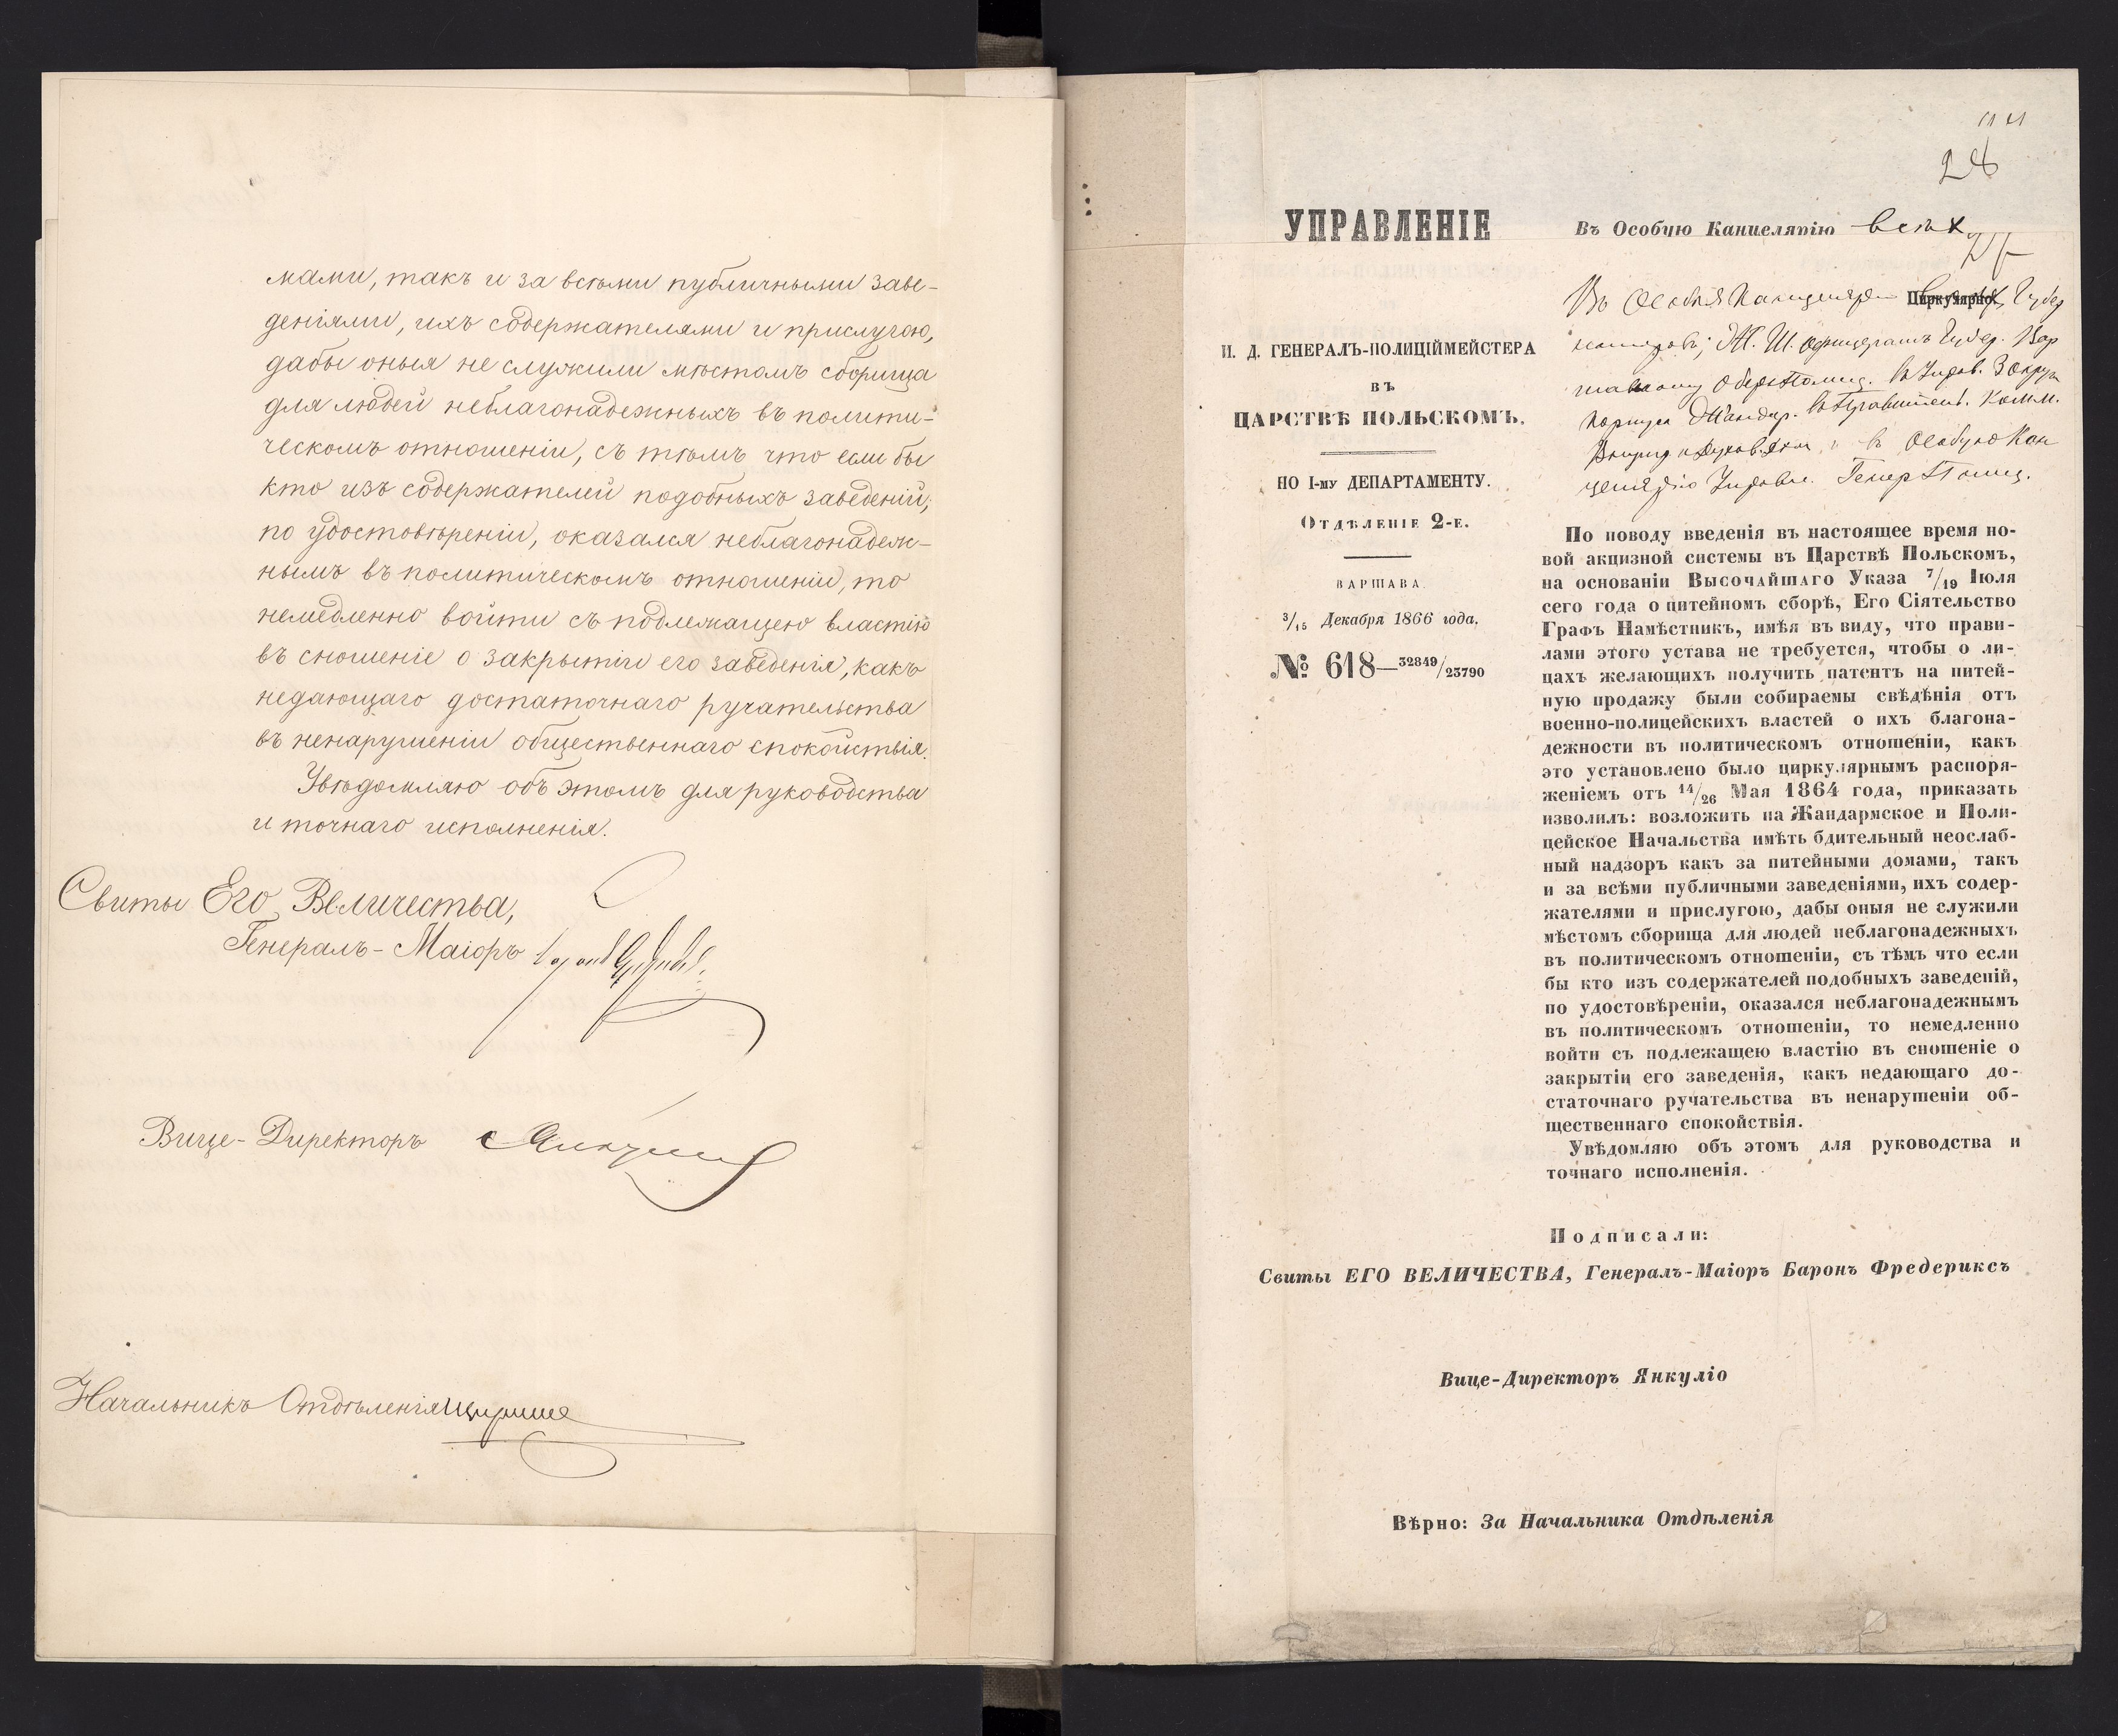 мами, такъ и за всѣми публичными заве-
деніями, ихъ содержателями и прислугою,
дабы оныя не служили мѣстомъ сборища
для людей неблагонадежныхъ въ полити-
ческомъ отношеніи, съ тѣмъ что если бы
кто изъ содержателей подобныхъ заведеній,
по удостовѣреніи, оказался неблагонадеж-
нымъ въ политическомъ отношеніи, то
немедленно войти съ подлежащею властію
въ сношеніе о закрытіи его заведенія, какъ
недающаго достаточнаго ручательства
въ ненарушеніи общественнаго спокойствія.
Увѣдомляю объ этомъ для руководства
и точнаго исполненія.
Свиты Его Величества,
Генералъ-Маіоръ
Вице-Директоръ
Начальникъ Отдѣленія
28
УПРАВЛЕНІЕ
И. Д. ГЕНЕРАЛЪ-ПОЛИЦІЙМЕЙСТЕРА
ВЪ
ЦАРСТВѢ ПОЛЬСКОМЪ.
ПО I-му ДЕПАРТАМЕНТУ.
Отдѣленіе 2-е.
ВАРШАВА.
3/15 Декабря 1866 года.
№ 618—32849/23790
Въ Особую Канцелярію
Въ Особыя Канцеляріи Циркулярно. Губер
Ж. Ш. Офицерамъ Губер. Вар
шавскому Оберъ Полиц. въ Управ. 3 Округа
Корпуса Жандар. въ Правительст. Комм.
и въ Особую Кан
целярію Управл. Генер Полиц.
По поводу введенія въ настоящее время но-
вой акцизной системы въ Царствѣ Польскомъ,
на основаніи Высочайшаго Указа 7/19 Іюля
сего года о питейномъ сборѣ, Его Сіятельство
Графъ Намѣстникъ, имѣя въ виду, что прави-
лами этого устава не требуется, чтобы о ли-
цахъ желающихъ получить патентъ на питей-
ную продажу были собираемы свѣдѣнія отъ
военно-полицейскихъ властей о ихъ благона-
дежности въ политическомъ отношеніи, какъ
это установлено было циркулярнымъ распоря-
женіемъ отъ 14/26 Мая 1864 года, приказать
изволилъ: возложить на Жандармское и Поли-
цейское Начальства имѣть бдительный неослаб-
ный надзоръ какъ за питейными домами, такъ
и за всѣми публичными заведеніями, ихъ содер-
жателями и прислугою, дабы оныя не служили
мѣстомъ сборища для людей неблагонадежныхъ
въ политическомъ отношеніи, съ тѣмъ что если
бы кто изъ содержателей подобныхъ заведеній,
по удостовѣреніи, оказался неблагонадежнымъ
въ политическомъ отношеніи, то немедленно
войти съ подлежащею властію въ сношеніе о
закрытіи его заведенія, какъ недающаго до-
статочнаго ручательства въ ненарушеніи об-
щественнаго спокойствія.
Увѣдомляю объ этомъ для руководства и
точнаго исполненія.
Подписали:
Свиты ЕГО ВЕЛИЧЕСТВА, Генералъ-Маіоръ Баронъ Фредериксъ
Вице-Директоръ Янкуліо
Вѣрно: За Начальника Отдѣленія